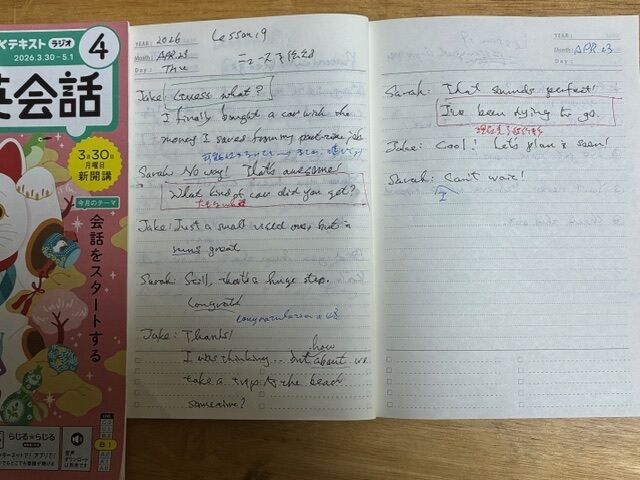 テキスト ラジオ
2026.3.30-5.1
4
英会話
3月30日
月曜日
新開講
今月のテーマ
会話をスタートする
らじる★らじる
YEAR: 2026
Lesson 19
Month: APR.23
ニュースを伝える
Day: Thu
Jake: Guess what?
I finally bought a car with the
money I saved from my part-time job.
Sarah: No way! That's awesome!
What kind of car did you get?
Jake: Just a small used one, but it
runs great
Sarah: Still, that's a huge step.
Congrats
Congratulations
Jake: Thanks!
how
I was thinking... but about we
take a trip to the beach
sometime?
YEAR:
Month: APR.23
Day:
Sarah: That sounds perfect!
I've been dying to go.
Jake: Cool! Let's plan it soon!
Sarah: Can't wait!
I